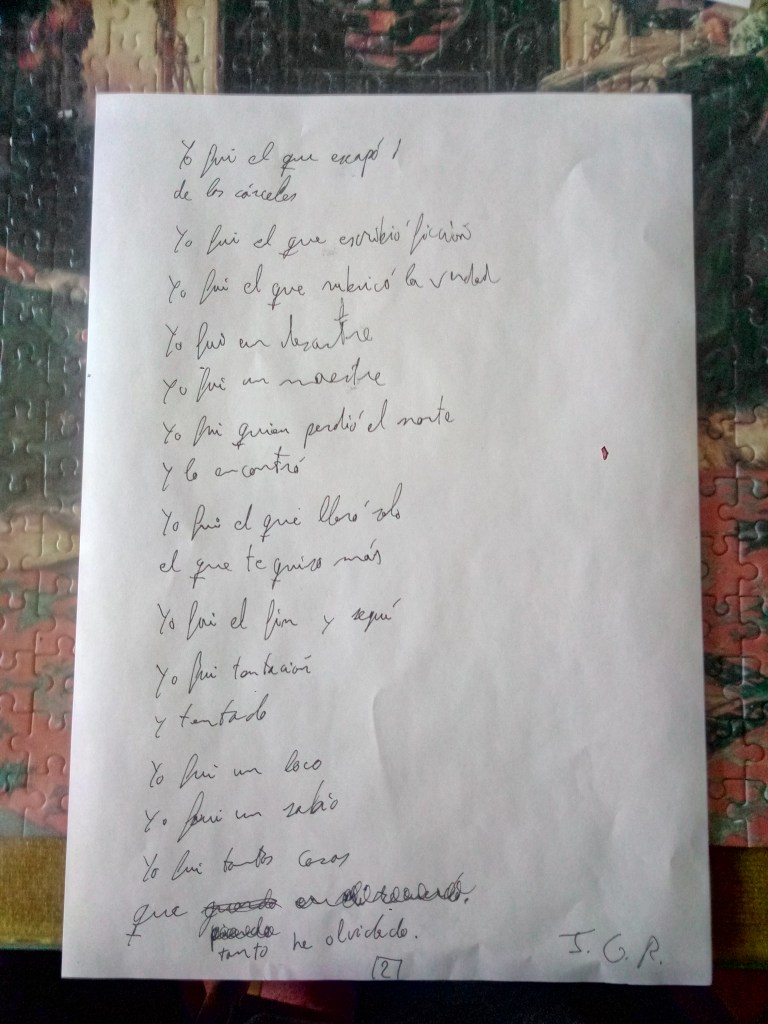 Yo fui el que escapó
de las cárceles
Yo fui el que escribió ficción
Yo fui el que rubricó la verdad
Yo fui un desastre
Yo fui un maestre
Yo fui quien perdió el norte
y lo encontró
Yo fui el que lloró solo
el que te quiso más
Yo fui el fin y seguí
Yo fui tentación
y tentado
Yo fui un loco
Yo fui un sabio
Yo fui tantas cosas
que
tanto he olvidado.
J. G. R.
2